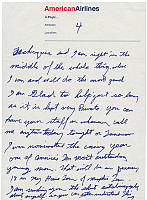 AmericanAirlines
In Flight...
Altitude;
Location;
4
and I am right in the
middle of the whole thing, where
I am and will do the most good
I am Glad to help just so long
as it is kept very Private. You can
have your staff or whomever call
me anytime today tonight or Tomorrow
I was nominated this coming year
one of America's Ten most outstanding
young men. That will be in January
18 in my Home Town of Memphis Tenn
I am sending you the short autobiography
about myself so you can understand this